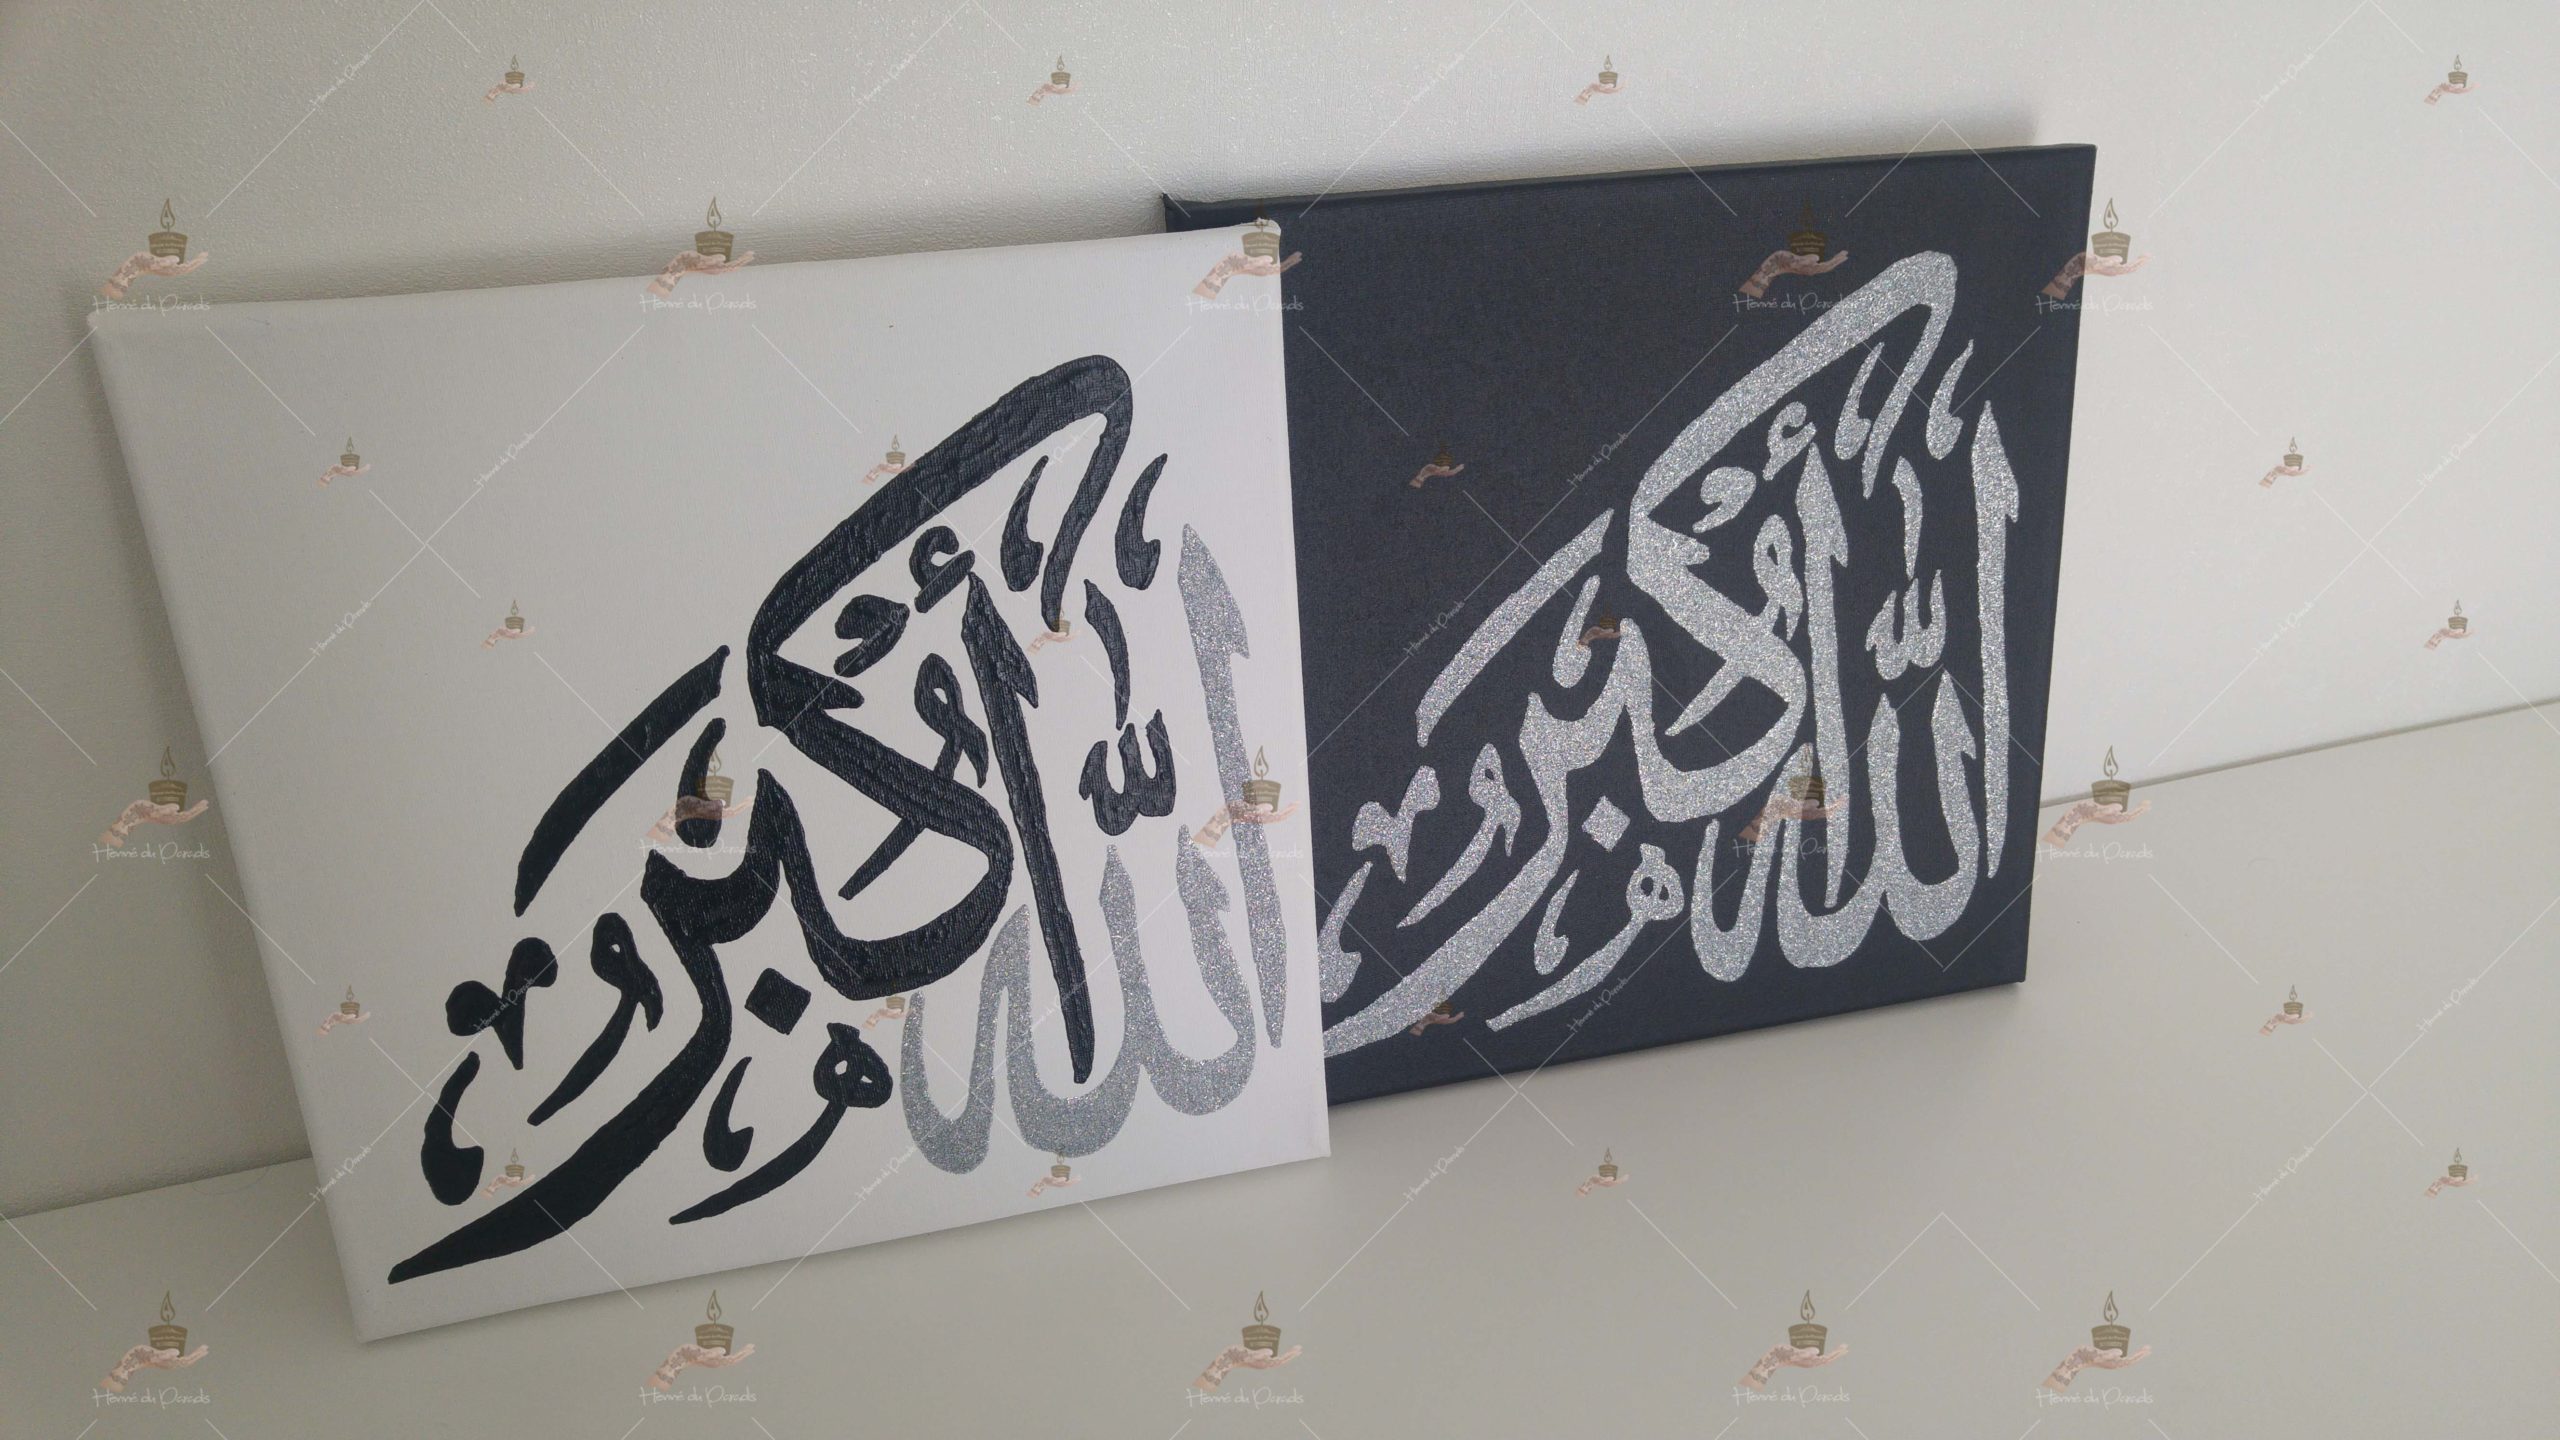 الله أكبر
الله أكبر
Henné du Paradis